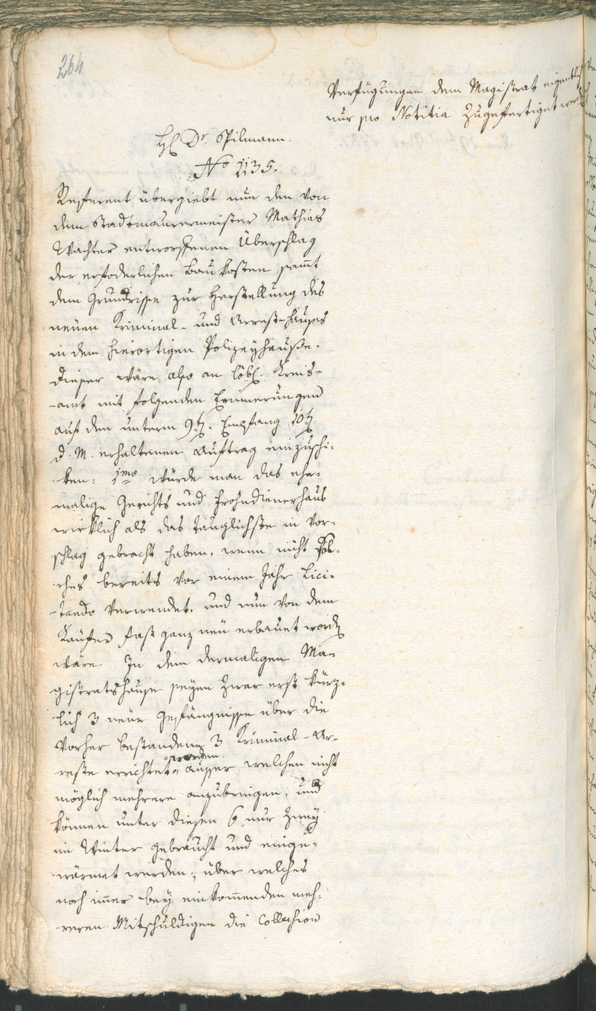 264
Verfügungen dem Magistrat eigentlich
nur pro Notitia zugefertiget
H Dr. Spilmann.
No 1135.
Referent übergiebt nun den von
dem Stadtmaurermeister Mathias
Wachter entworfenen Überschlag
der erforderlichen Baukosten samt
dem Grundrisse zur Herstellung des
neuen Kriminal- und Arrest-Hauses
in dem hierortigen Polizeyhause.
Dieser wäre also an löbl. Kreis-
amt mit folgenden Erinnerungen
auf den unterm 9t. Empfang 10t
d. M. erhaltenen Auftrag einzuschi-
ken: 1mo würde man das ehe-
malige Gerichts und Frohndienerhaus
wirklich als das tauglichste in Vor-
schlag gebracht haben, wenn nicht sol-
ches bereits vor einem Jahr lici-
tando verwendet, und nun von dem
Käufer fast ganz neu erbauet word
wäre. In dem dermaligen Ma-
gistratshause seyen zwar erst kürz-
lich 3 neue Gefängnisse über die
vorher bestandenen 3 Kriminal-Ar-
reste errichtet worden, ausser welchen nicht
möglich mehrere anzubringen, und
können unter diesen 6 nur zwey
im Winter gebraucht und einge-
wärmet werden, über welches
noch immer bey einkommenden meh-
reren Mitschuldigen die Collusion